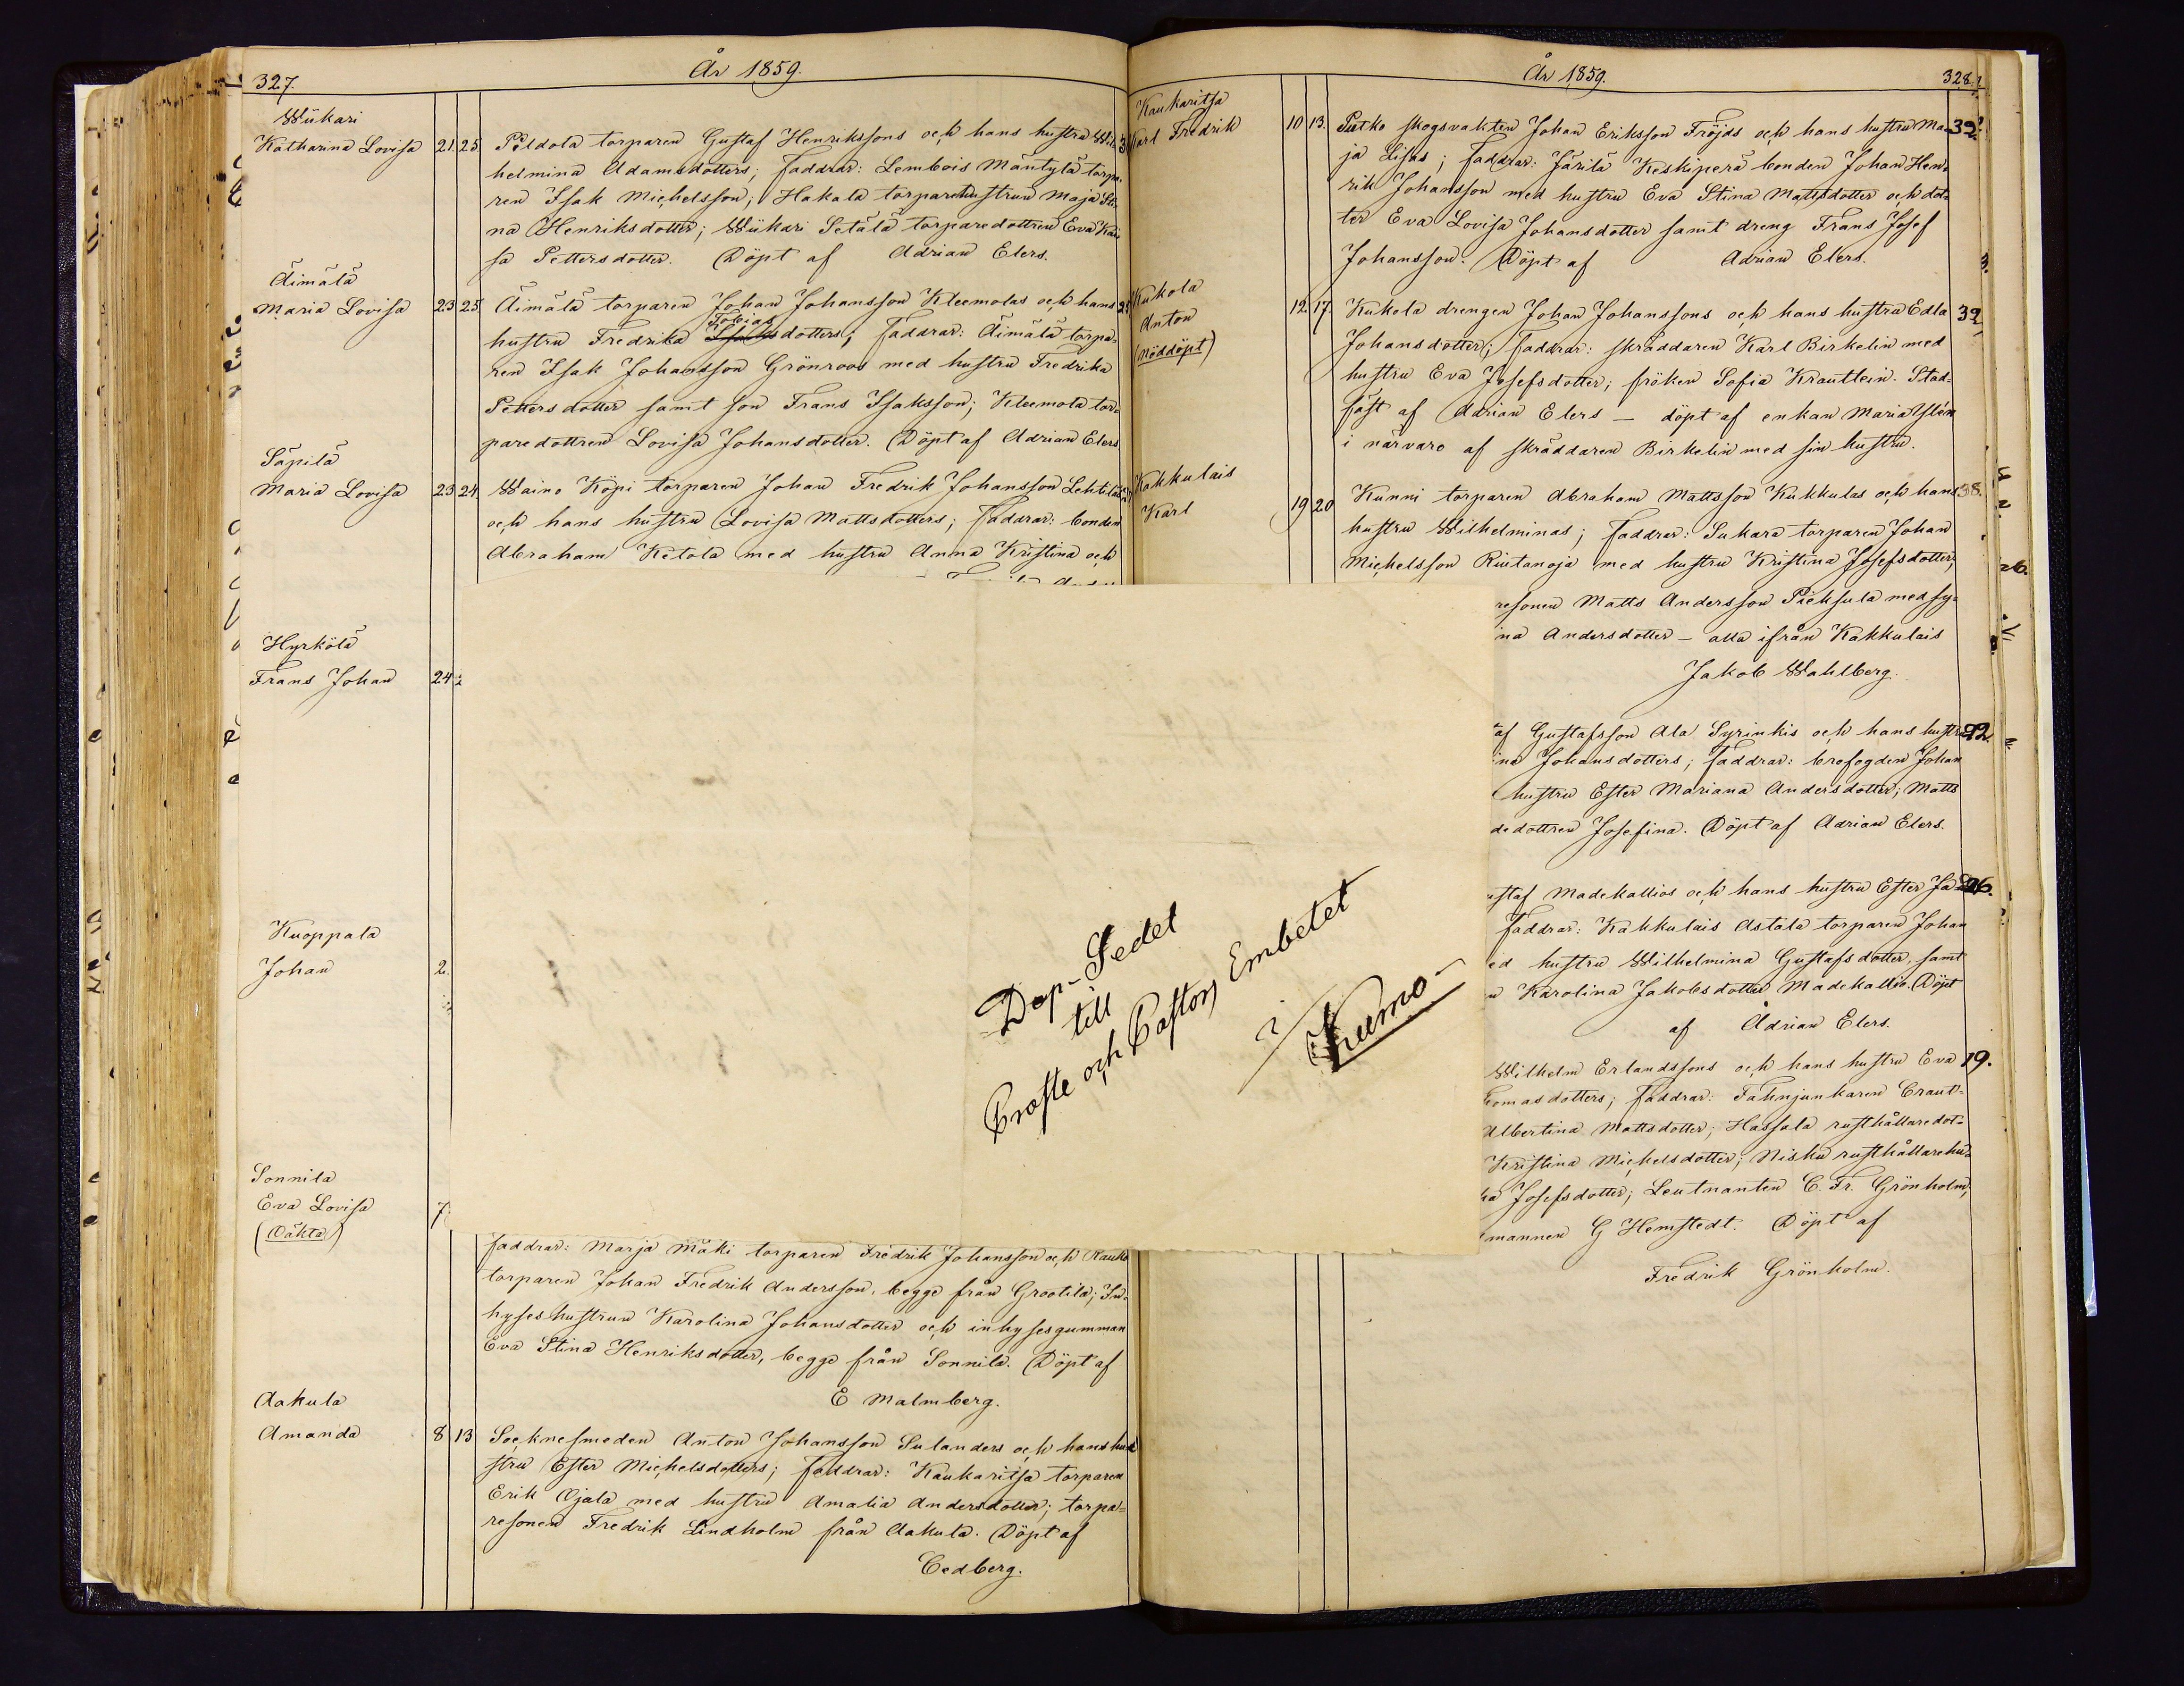 327.
År 1859.
Wükari
Katharina Lovisa 21. 25. Pildola torparen Gustaf Henrikssons och hans hustru Wil-
helmina Adamsdotters; faddrar: Lembois Mäntylä torpa-
ren Isak Michelsson; Hakala torparehustrun Maja Sti-
na Henriksdotter; Wükari Setälä torparedottren Eva Kai-
sa Pettersdotter. Döpt af Adrian Elers.
Äimälä
Maria Lovisa 23 25. Äimälä torparen Johan Johansson Kleemolas och hans
Tobias
hustru Fredrika Isaksdotters; faddrar: Äimälä torpa-
ren Isak Johansson Grönroos med hustru Fredrika
Pettersdotter samt son Frans Isaksson; Kleemola tor-
paredottren Lovisa Johansdotter. Döpt af Adrian Elers
Säpilä
Maria Lovisa 23 24. Waino Köpi torparen Johan Fredrik Johansson Lehtilas
och hans hustru Lovisa Mattsdotters; faddrar: bonden
Abraham Ketola med hustru Anna Kristina och
Hyrkölä
Frans Johan 24
Kuoppala
Johan 2.
Sonnila
Eva Lovisa 7
(Oäkta)
faddrar: Marja Mäki torparen Fredrik Johansson och Rauko
torparen Johan Fredrik Andersson, begge från Grootila; In-
hyseshustrun Karolina Johansdotter och inhysesgumman
Eva Stina Henriksdotter, begge från Sonnila. Döpt af
E Malmberg.
Aakula
Amanda 8 13 Socknesmeden Anton Johansson Sulanders och hans hu-
stru Ester Michelsdotters; faddrar: Kaukaritsa torparen
Erik Ojala med hustru Amalia Andersdotter; torpa-
resonen Fredrik Lindholm från Aakula. Döpt af
Cedberg.
Dop-Sedel
till
Proste och Pastors Embetet
i
Kumo
År 1859.
328.
Kaukaritsa
Karl Fredrik 10 13. Putko skogsvakten Johan Eriksson Fröjds och hans hustru Ma- 32
ja Lisas; faddrar: Järilä Keskiperä bonden Johan Hen-
rik Johansson med hustru Eva Stina Mattsdotter och dot-
ter Eva Lovisa Johansdotter samt dreng Frans Josef
Johansson. Döpt af Adrian Elers.
Kukola
Anton 12. 17. Kukola drengen Johan Johanssons och hans hustru Edla 32
(nöddöpt) Johansdotter; faddrar: skräddaren Karl Birkelin med
hustru Eva Josefsdotter; fröken Sofia Krautlein. Stad-
fäst af Adrian Elers — döpt af enkan Maria Ylén
i närvaro af skräddaren Birkelin med sin hustru.
Kakkulais
Karl 19 20 Kunni torparen Abraham Mattsson Kukkulas och hans 38.
hustru Wilhelminas; faddrar: Sukara torparen Johan
Michelsson Riutanoja med hustru Kristina Josefsdotter;
resonen Matts Andersson Pieksula med sy-
ina Andersdotter — alla ifrån Kakkulais
Jakob Wahlberg.
af Gustafsson Ala Syrinkis och hans hustru 22.
ina Johansdotters; faddrar: brofogden Johan
hustru Ester Mariana Andersdotter; Matts
dedottren Josefina. Döpt af Adrian Elers.
ustaf Madekallios och hans hustru Ester Ja 26.
faddrar: Kakkulais Astala torparen Johan
ed hustru Wilhelmina Gustafsdotter, samt
n Karolina Jakobsdotter Madekallio. Döpt
af Adrian Elers.
Wilhelm Erlandssons och hans hustru Eva 19.
homasdotters; faddrar: Fahnjunkaren Craut-
Albertina Mattsdotter; Hassala rusthållaredot-
Kristina Michelsdotter; Nisku rusthållarehu-
ka Josefsdotter; Leutnanten C. Fr. Grönholm,
mannen G Hemstedt. Döpt af
Fredrik Grönholm.